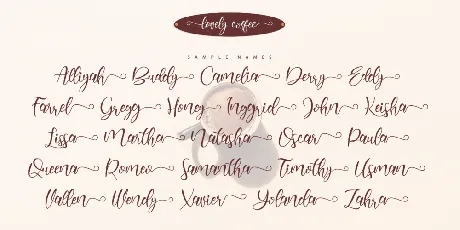 lovely coffee
SAMPLE NAMES
Alliyah Buddy Camelia Derry Eddy
Farrel Gregg Honey Inggrid John Keisha
Lissa Martha Natasha Oscar Paula
Queena Romeo Samantha Timothy Usman
Vallen Wendy Xavier Yolanda Zahra